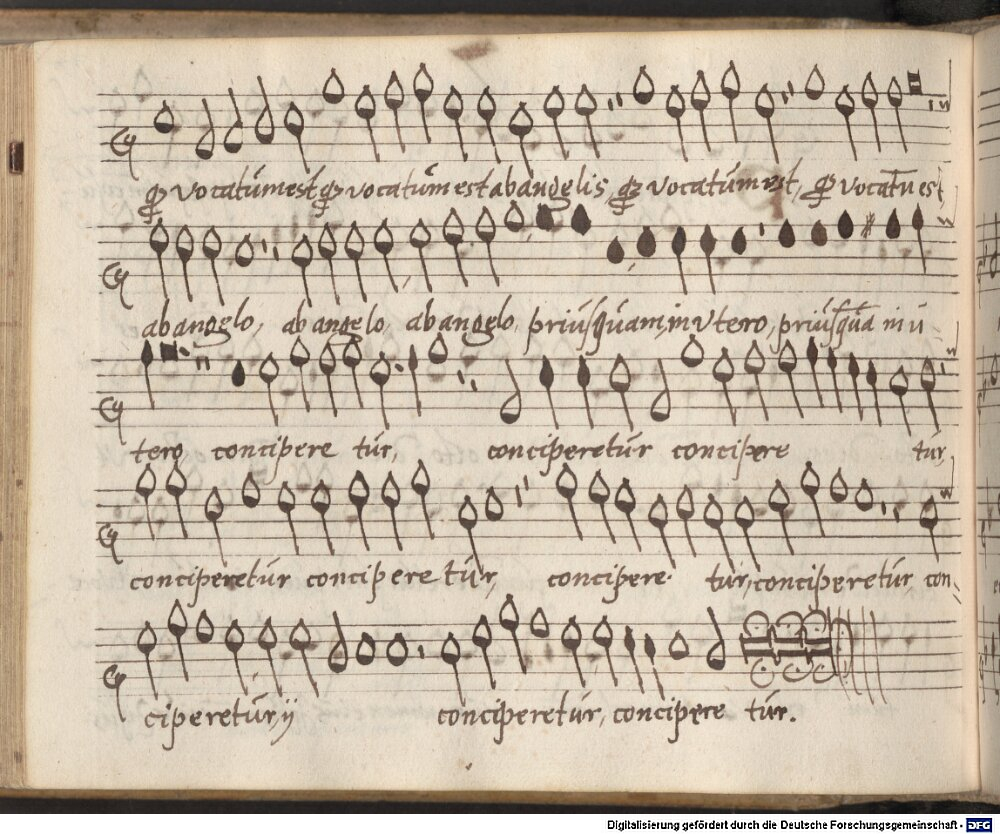 vocatum est vocatum est ab angelis, vocatum est, vocatū est
ab angelo, ab angelo, ab angelo, priusquam, in utero, priusquā in u
tero conciperetur, conciperetur concipere tur,
conciperetur concipere tur, concipere tur, conciperetur, con-
ciperetur, ij conciperetur, concipere tur.
Digitalisierung gefördert durch die Deutsche Forschungsgemeinschaft - DFG